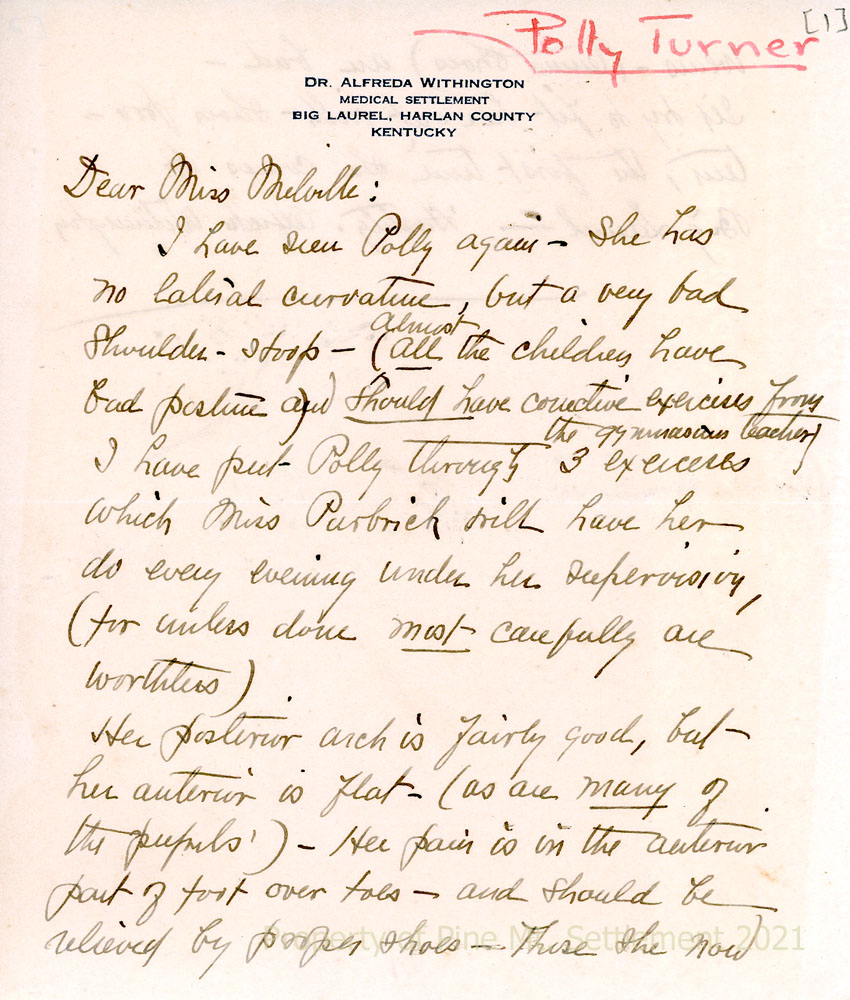 [1]
Polly Turner
DR. ALFREDA WITHINGTON
MEDICAL SETTLEMENT
BIG LAUREL, HARLAN COUNTY
KENTUCKY
Dear Miss Melville:
I have seen Polly again – She has
no lateral curvature, but a very bad
shoulder-stoop – (almost all the children have
bad posture and) should have corrective exercises from
the gymnasium teacher)
I have put Polly through 3 exercises
which Miss Purbrick will have her
do every evening under her supervision,
(for unless done most carefully are
worthless).
Her posterior arch is fairly good, but
her anterior is flat – (as are many of
the pupils') – Her pain is in the anterior
part of foot over toes – and should be
relieved by proper shoes – Those she now
Property of Pine Mt. Settlement 2021